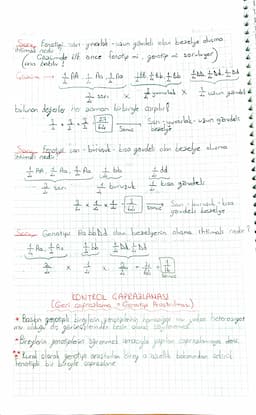 Soru: Fenotipi sarı-yuvarlak-uzun gövdeli olan bezelye oluşma
ihtimali nedir?
Çözüm → 1/4 AA 1/4 Aa 1/4 Aa
3/4 sarı 3/4 yuvarlak x 3/4 uzun gövdeli
bulunan değerler her zaman birbiriyle çarpılır!
3/4 x 3/4 x 3/4 = 27/64 → Sarı-yuvarlak-uzun gövdeli
sonuç bezelye
Soru: Fenotipi sarı-buruşuk-kısa gövdeli olan bezelye oluşma
ihtimali nedir?
1/4 AA, 1/4 Aa, 1/4 Aa 1/4 bb 1/4 dd
3/4 sarı 1/4 buruşuk 1/4 kısa gövdeli
3/4 x 1/4 x 1/4 = 3/64 sonuç → Sarı-buruşuk-kısa
gövdeli bezelye
Soru: Genotipi AabbDd olan bezelyenin oluşma ihtimali nedir?
1/4 Aa, 1/4 Aa 1/4 bb 1/4 Dd 1/4 Dd
2/4 x 1/4 x 2/4 = 4/64 = 1/16
sonuç
KONTROL ÇAPRAZLAMASI
(Geri çaprazlama = Genotip Araştırması)
* Baskın genotipli bireylerin genotiplerinin homozigot mu yoksa heterozigot
mu olduğu dış görünüşlerinden kesin olarak
* Bireylerin genotiplerini öğrenmek amacıyla yapılan çaprazlamaya denir.
** Kural olarak genotipi araştırılan birey o özellik bakımından çekinik
fenotipli bir bireyle çaprazlanır